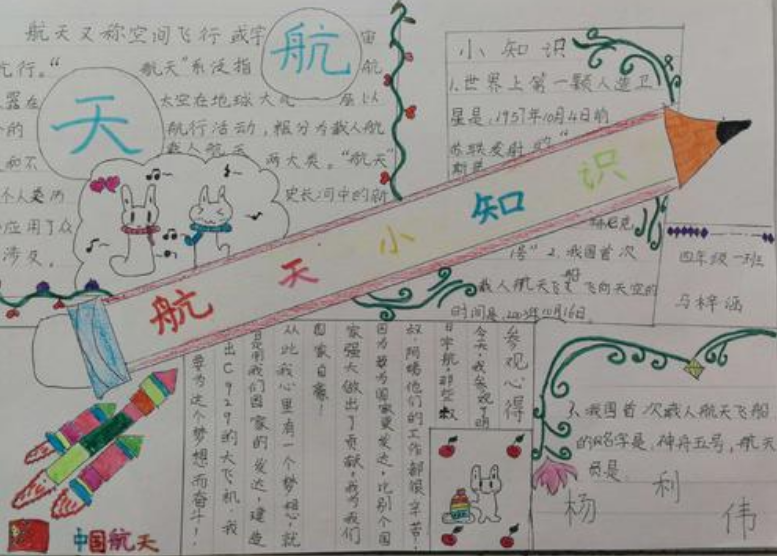 航天又称空间飞行或宇宙
航行。“航天”系泛指航
器在太空在地球大气层以
的航行活动，粗分为载人航
和不载人航天两大类。“航天”
个人类历史长河中的新
应用了众
涉及
航天
小知识
1.世界上第一颗人造卫
星是，1957年10月4日的
苏联发射的“
斯普
特尼克
1号”2.我国首次
载人航天飞船飞向天空的
时间是，2003年10月16日。
航天小知识
四年级一班
马梓涵
参观心得
今天，我参观了明
日宇航，那些叔
叔、阿姨他们的工作都很辛苦！
因为要为国家更发达，比别个国
家强大做出了贡献，我为我们
国家自豪！
从此我心里有一个梦想，就
是用我们国家的发达，建造
出C929的大飞机，我
要为这个梦想而奋斗！
3.我国首次载人航天飞船
的名字是，神舟五号，航天
员是
杨利伟
中国航天